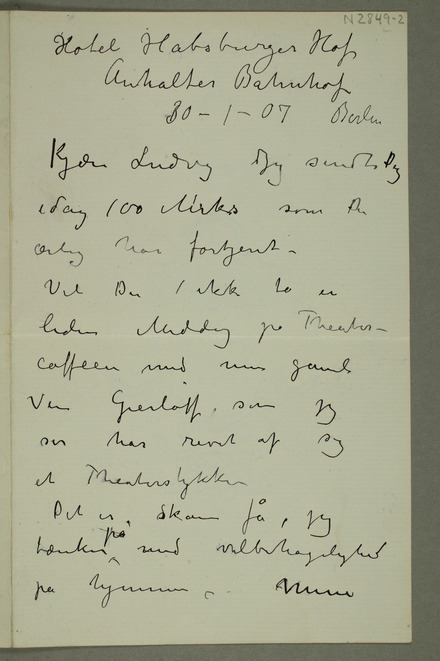 N 2849-2
Hotel Habsburger Hof
Anhalter Bahnhof
30-1-07 Berlin
Kjære Ludvig Jeg sendte Dig
idag 100 Marks som Du
ærlig har fortjent -
Vil Du ikke ta en
liden Middag på Theater-
caffeen med min gamle
Ven Gierløff, som jeg
ser har revet af sig
et Theaterstykke
Det er, skam få, jeg
tænker på med velbehagelighed
på hjemme